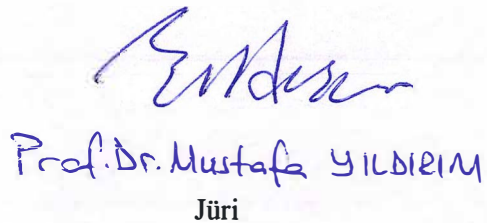 Prof. Dr. Mustafa YILDIRIM
Jüri